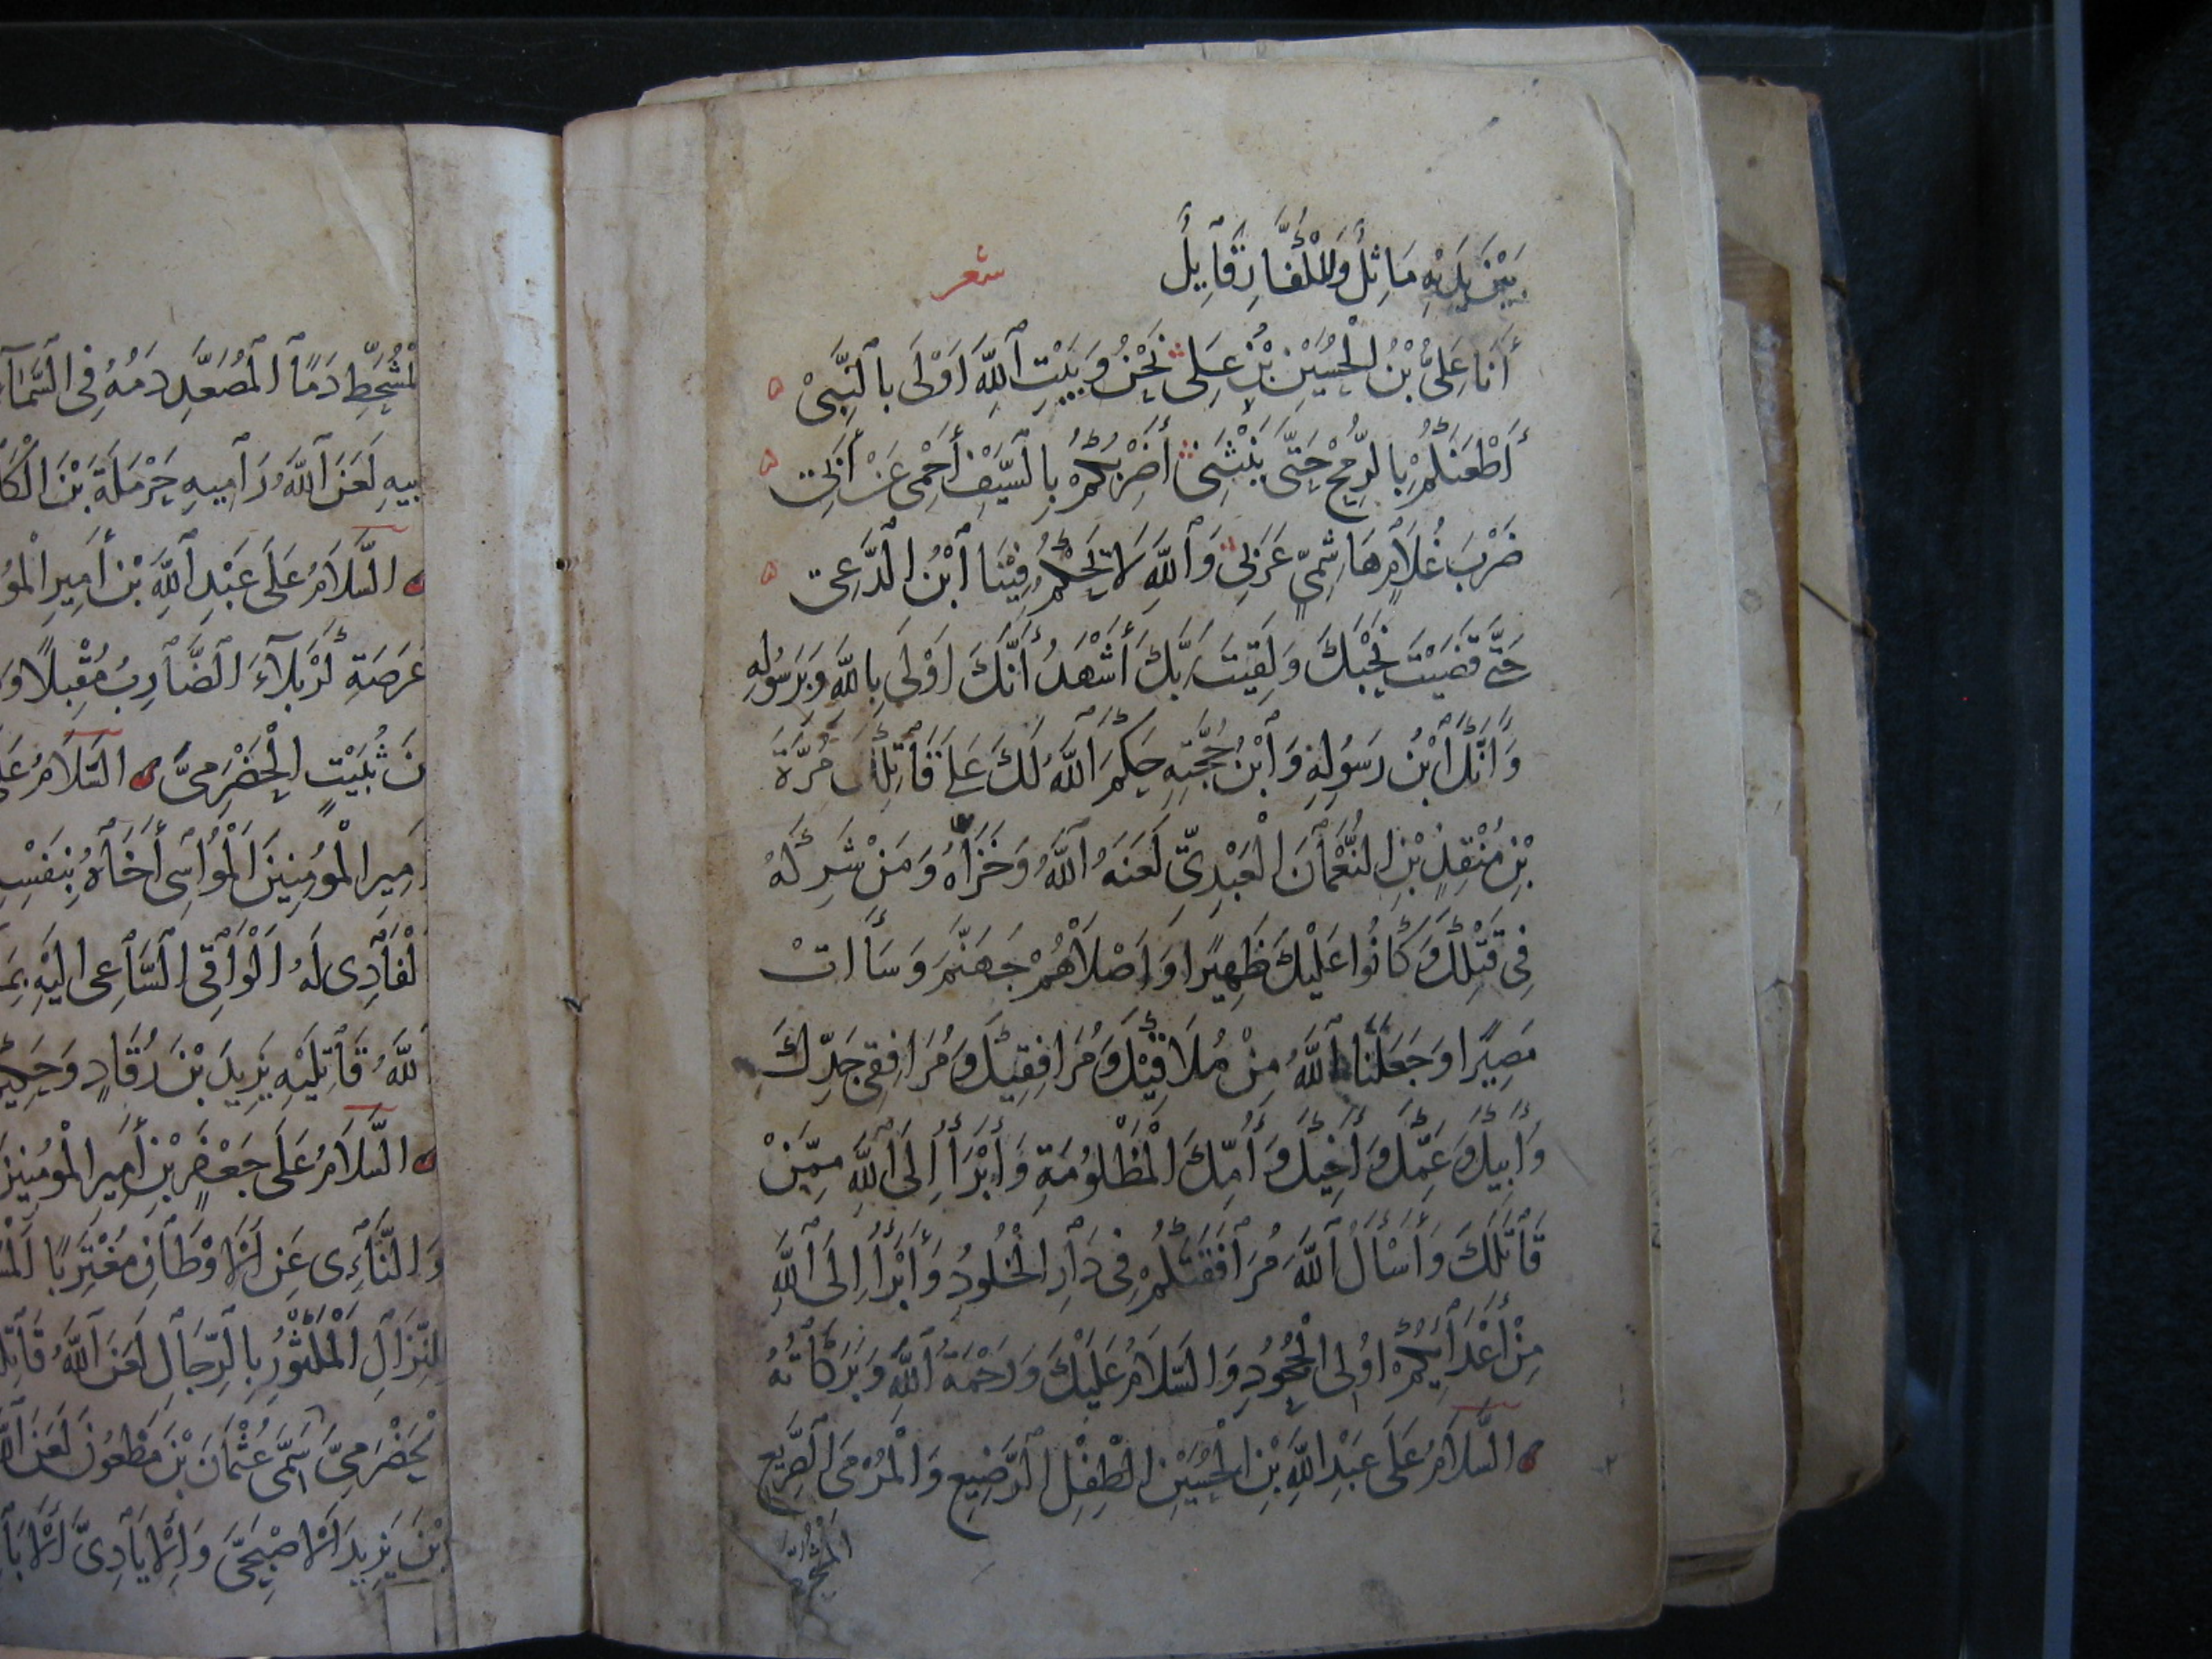 بَيْنَ يَدَيْهِ مَاثِلٌ وَلِلْكُفَّارِ قَآئِلٌ شعر
أَنَا عَلِىُّ بْنُ الْحُسَيْنِ بْنِ عَلِى نَحْنُ وَبَيْتِ اللَّهِ اَوْلَى بِالنَّبِىْ
أَطْعَنُكُمْ بِالرُّمْحِ حَتَّى يَنْثَنِى أَضْرِبُكُمْ بِالسَّيْفِ أَحْمِى عَنْ أَبِى
ضَرْبَ غُلَامٍ هَاشِمِىٍّ عَرَبِى وَاللَّهِ لَا يَحْكُمُ فِيْنَا ابْنُ الدَّعِى
حَتَّى قَضَيْتَ نَحْبَكَ وَلَقِيْتَ رَبَّكَ أَشْهَدُ أَنَّكَ اَوْلَى بِاللَّهِ وَبِرَسُولِهِ
وَأَنَّكَ ابْنُ رَسُولِهِ وَابْنُ حُجَّتِهِ حَكَمَ اللَّهُ لَكَ عَلَى قَاتِلِكَ مُرَّةَ
بْنِ مُنْقِذِ بْنِ النُّعْمَانَ الْعَبْدِىِّ لَعَنَهُ اللَّهُ وَخَزَاهُ وَمَنْ شَرِكَهُ
فِى قَتْلِكَ وَكَانُوا عَلَيْكَ ظَهِيرًا وَأَصْلَاهُمْ جَهَنَّمَ وَسَأَاتْ
مَصِيرًا وَجَعَلَنَا اللَّهُ مِنْ مُلَاقِيْكَ وَمُرَافِقِيكَ وَمُرَافِقِى جَدِّكَ
وَأَبِيكَ وَعَمِّكَ وَأَخِيكَ وَأُمِّكَ الْمَظْلُومَةِ وَأَبْرَأُ إِلَى اللَّهِ مِمَّنْ
قَاتَلَكَ وَأَسْأَلُ اللَّهَ مُرَافَقَتَكُمْ فِى دَارِ الْخُلُودِ وَأَبْرَأُ إِلَى اللَّهِ
مِنْ أَعْدَآئِكُمْ اُولِى الْجُحُودِ وَالسَّلَامُ عَلَيْكَ وَرَحْمَةُ اللَّهِ وَبَرَكَاتُهُ
السَّلَامُ عَلَى عَبْدِ اللَّهِ بْنِ الْحُسَيْنِ الطِّفْلِ الرَّضِيعِ وَالْمَرْمَى الصَّرِيعِ
الْمُشَحَّطِ دَمًا الْمُصَعَّدِ دَمُهُ فِى السَّمَآءِ
بِيهِ لَعَنَ اللَّهُ رَامِيهِ حَرْمَلَةَ بْنَ الْكَا
السَّلَامُ عَلَى عَبْدِ اللَّهِ بْنِ أَمِيرِ الْمُؤ
عَرَصَةِ كَرْبَلَآءَ الضَّارِبُ مُقْبِلًا وَ
نَ ثُبَيْتٍ الْحَضْرَمِىَّ السَّلَامُ عَلَ
مِيرِ الْمُؤمِنِينَ الْمُوَاسِى أَخَاهُ بِنَفْسِ
لْفَادِى لَهُ الْوَاقِى السَّاعِى إلَيْهِ بِمَ
للَّهُ قَاتِلَيْهِ يَزِيدَ بْنَ رُقَادٍ وَحَكِيْ
السَّلَامُ عَلَى جَعْفَرِ بْنِ أَمِيرِ الْمُؤمِنِينَ
وَالنَّآئِى عَنِ الْاَوْطَانِ مُغْتَرِبًا الْمُ
لِلنِّزَالِ الْمَكْثُورُ بِالرِّجَالِ لَعَنَ اللَّهُ قَاتِلَ
لْحَضْرَمِىَّ سَمِّى عُثْمَانَ بْنَ مَظْعُونَ لَعَنَ اللَّ
بْنَ يَزِيدَ الْاَصْبَحِىَّ وَالْاِيَادِىَّ الْاَبَا